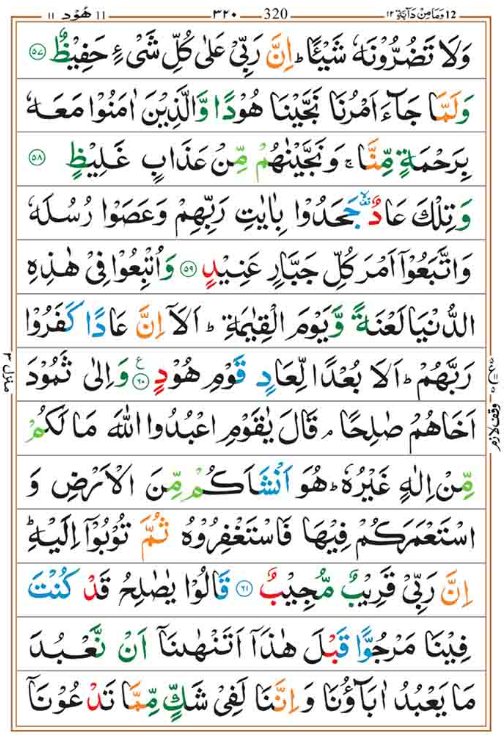 وَمَا مِنْ دَآبَّةٍ ١٢ 12 320 ٣٢٠ هُوْد ١١ ١١
وَلَا تَضُرُّوْنَهٗ شَيْـًٔا ؕ اِنَّ رَبِّىْ عَلٰى كُلِّ شَىْءٍ حَفِيْظٌ ۝٥٧
وَلَمَّا جَآءَ اَمْرُنَا نَجَّيْنَا هُوْدًا وَّالَّذِيْنَ اٰمَنُوْا مَعَهٗ
بِرَحْمَةٍ مِّنَّا ۚ وَنَجَّيْنٰهُمْ مِّنْ عَذَابٍ غَلِيْظٍ ۝٥٨
وَتِلْكَ عَادٌ ۟ۙ جَحَدُوْا بِاٰيٰتِ رَبِّهِمْ وَعَصَوْا رُسُلَهٗ
وَاتَّبَعُوْۤا اَمْرَ كُلِّ جَبَّارٍ عَنِيْدٍ ۝٥٩ وَاُتْبِعُوْا فِىْ هٰذِهِ
الدُّنْيَا لَعْنَةً وَّيَوْمَ الْقِيٰمَةِ ؕ اَلَاۤ اِنَّ عَادًا كَفَرُوْا
رَبَّهُمْ ؕ اَلَا بُعْدًا لِّعَادٍ قَوْمِ هُوْدٍ ۝٦٠ ع وَاِلٰى ثَمُوْدَ
اَخَاهُمْ صٰلِحًا ۘ قَالَ يٰقَوْمِ اعْبُدُوا اللّٰهَ مَا لَكُمْ
مِّنْ اِلٰهٍ غَيْرُهٗ ؕ هُوَ اَنْشَاَكُمْ مِّنَ الْاَرْضِ وَ
اسْتَعْمَرَكُمْ فِيْهَا فَاسْتَغْفِرُوْهُ ثُمَّ تُوْبُوْۤا اِلَيْهِ ؕ
اِنَّ رَبِّىْ قَرِيْبٌ مُّجِيْبٌ ۝٦١ قَالُوْا يٰصٰلِحُ قَدْ كُنْتَ
فِيْنَا مَرْجُوًّا قَبْلَ هٰذَاۤ اَتَنْهٰىنَاۤ اَنْ نَّعْبُدَ
مَا يَعْبُدُ اٰبَآؤُنَا وَاِنَّنَا لَفِىْ شَكٍّ مِّمَّا تَدْعُوْنَاۤ
منزل ٣
وقف لازم